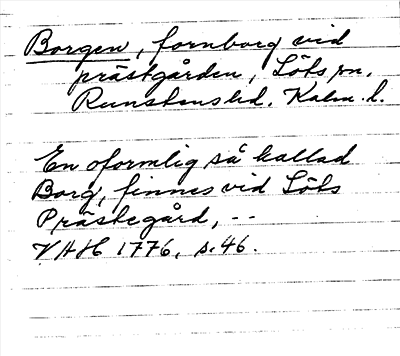 Borgen, fornborg vid
prästgården, Löts sn.
Runstens hd. Kalm. l.
En oformlig så kallad
Borg, finnes vid Löts
Prästegård, --
VHH 1776, s. 46.